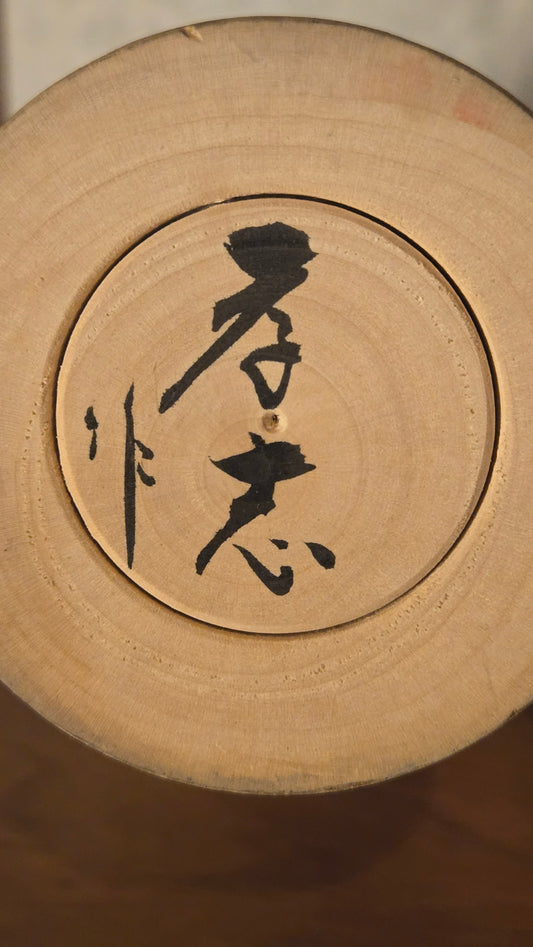 孝志
作